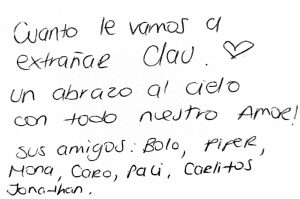 Cuanto le vamos a
extrañar Clau. ♡
un abrazo al cielo
con todo nuestro Amor!
sus amigos: Bolo, Piper,
Mona, Coro, Pali, Carlitos
Jonathan.